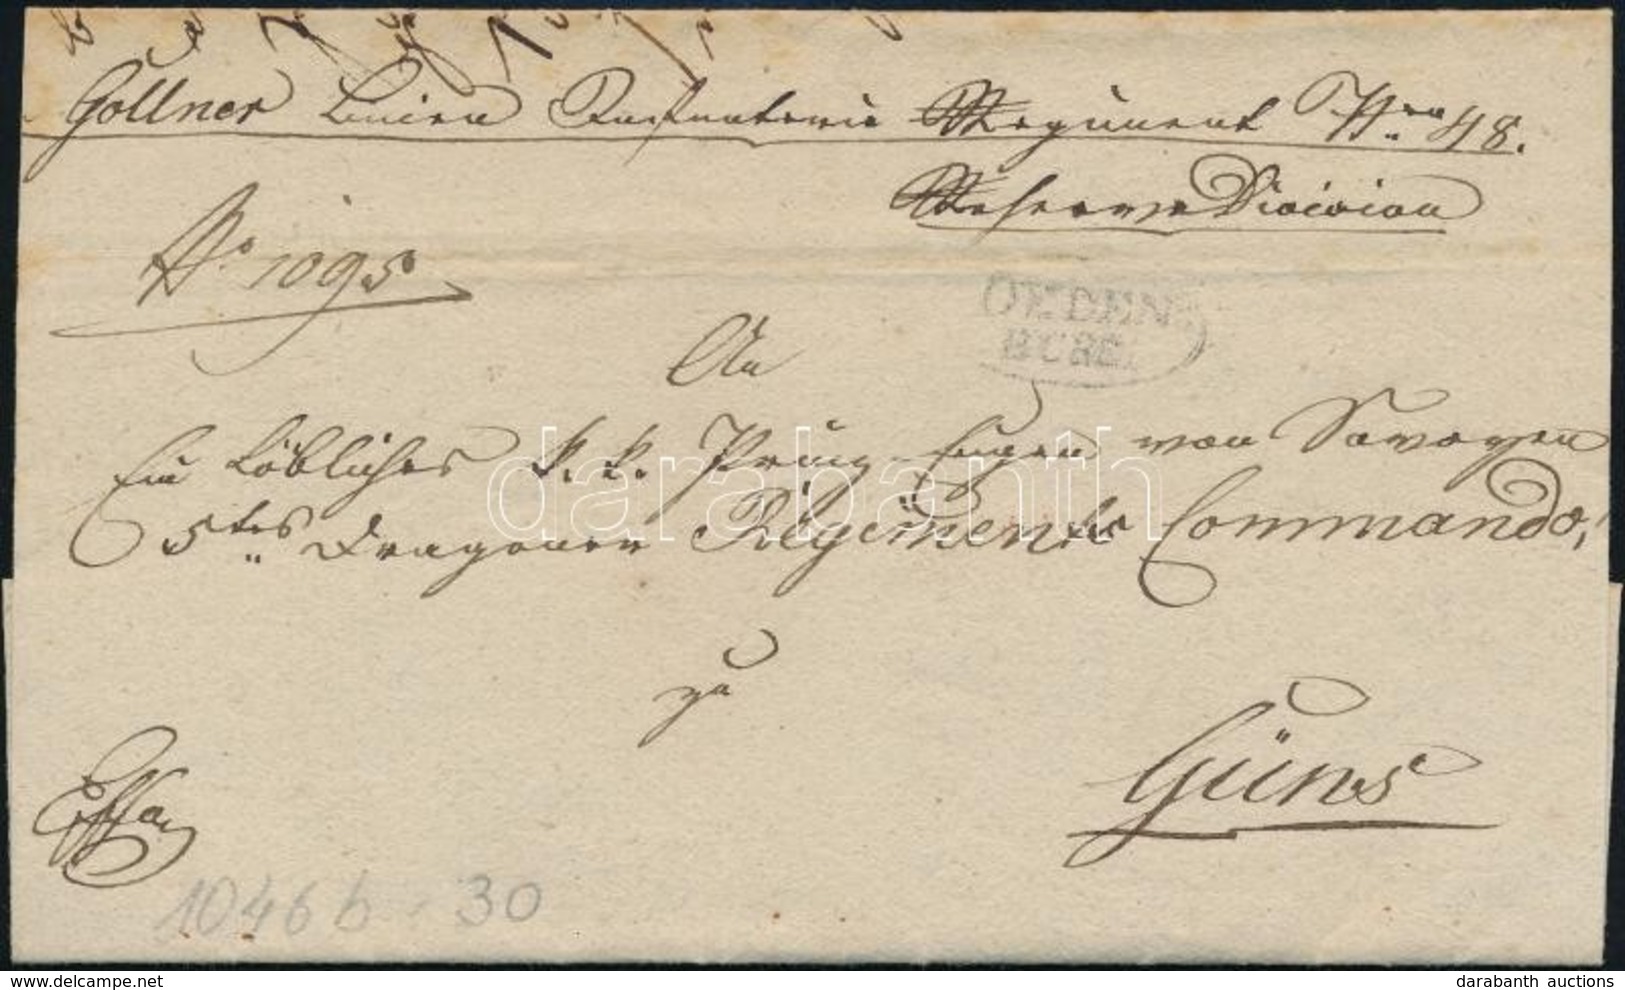 Göllner Linien Infanterie Regiment Nro 48.
Reserve Division
No 1095
OEDEN
BURG.
An
Ein Löbliches k. k. Prinz Eugen von Savoyen
5tes Dragoner Regiments Commando,
zu
Güns
1046 b 30
darabanth
darabanth auctions